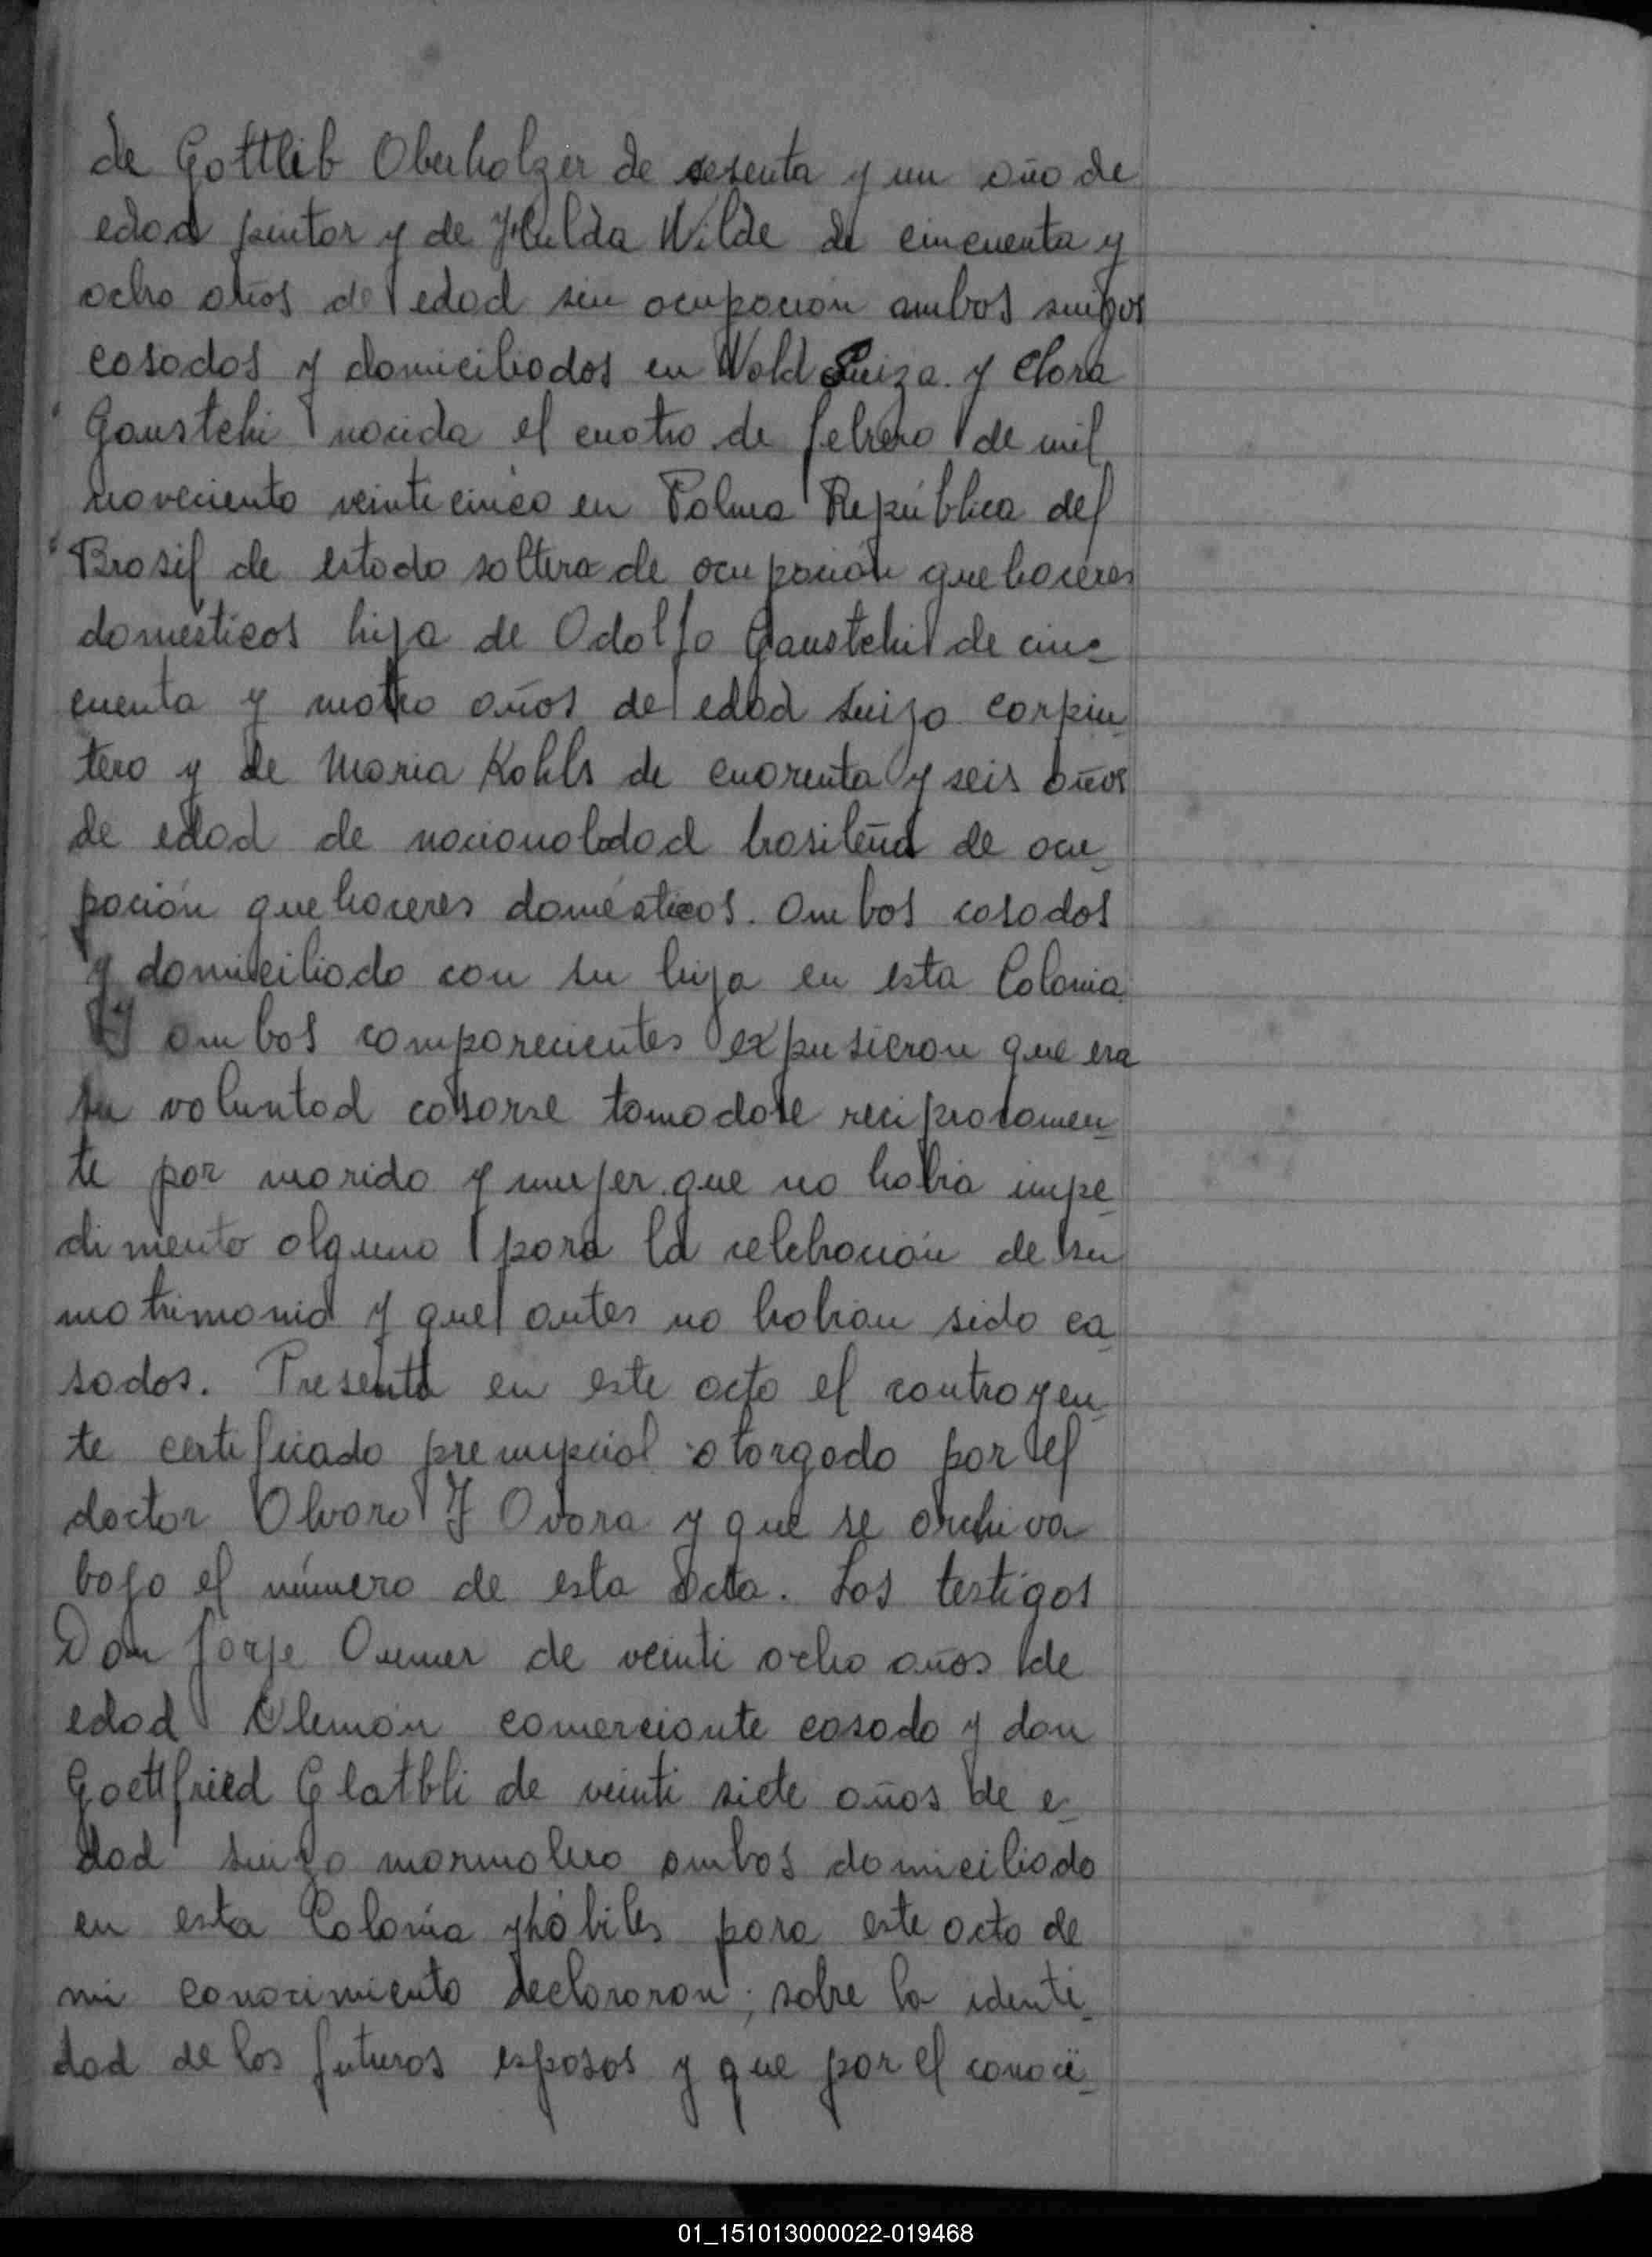 de Gottlib Oberholzer de sesenta y un año de
edad pintor y de Hulda Wilde de cincuenta y
ocho años de edad sin ocupación ambos suizos
casados y domiciliados en Wald Suiza. y Clara
Gaustchi nacida el cuatro de febrero de mil
noveciento veinticinco en Palma República del
Brasil de estado soltera de ocupación quehaceres
domésticos hija de Adolfo Gaustchi de cin-
cuenta y cuatro años de edad suizo carpin-
tero y de Maria Kohls de cuarenta y seis años
de edad de nacionalidad brasileña de ocu-
pación quehaceres domésticos. ambos casados
y domiciliado con su hija en esta Colonia.
Y ambos comparecientes expusieron que era
su voluntad casarse tomadose reciprocamen-
te por marido y mujer que no habia impe-
dimento alguno para la celebración de su
matrimonio y que antes no habian sido ca-
sados. Presenta en este acto el contrayen-
te certificado prenupcial otorgado por el
doctor Alvaro J y que se archiva
bajo el número de esta acta. Los testigos
Don Jorje de veinti ocho años de
edad Aleman comerciante casado y don
Goettfried Glatbli de veinti siete años de e-
dad suizo marmolero ambos domiciliado
en esta Colonia y hábiles para este acto de
mi conocimiento declararon; sobre la identi-
dad de los futuros esposos y que por el conoci-
01_151013000022-019468